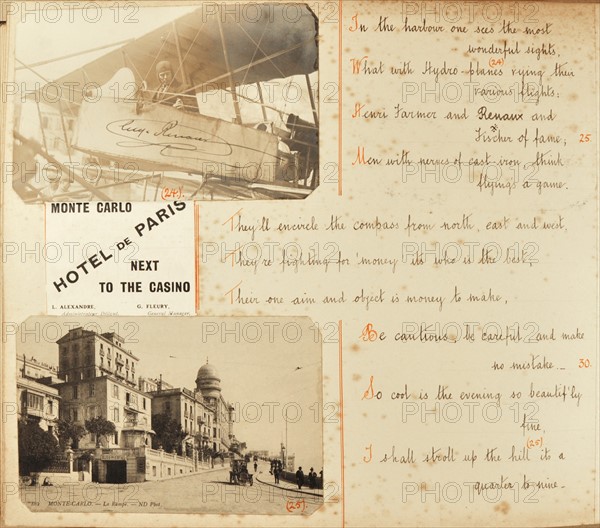 Eug. Renaux
(24).
MONTE CARLO
HOTEL DE PARIS
NEXT
TO THE CASINO
L. ALEXANDRE,
G. FLEURY,
General Manager.
154 MONTE-CARLO. — La Rampe. — ND Phot
(25).
In the harbour one sees the most
wonderful sights,
(24)
What with Hydro-planes vying their
various flights:
Henri Farmer and Renaux and
Fischer of fame; 25.
Men with nerves of cast-iron, think
flying's a game.
They'll encircle the compass from north, east and west,
They're fighting for 'money' its who is the best,
Their one aim and object is money to make,
Be cautious, be careful, and make
no mistake — 30.
So cool is the evening so beautif'ly
fine,
(25)
I shall stroll up the hill its a
quarter to nine —